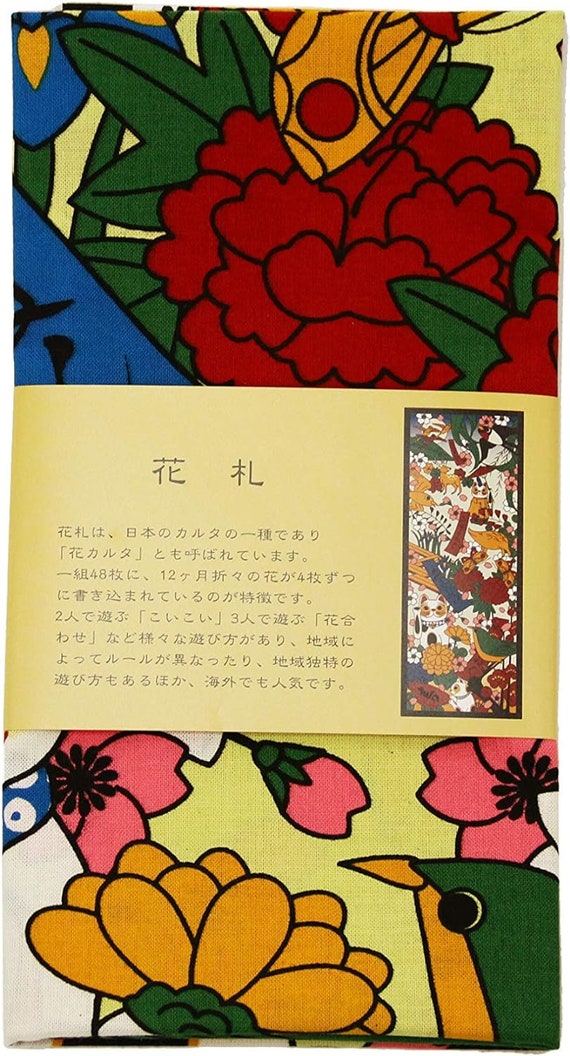 花札
花札は、日本のカルタの一種であり
「花カルタ」とも呼ばれています。
一組48枚に、12ヶ月折々の花が4枚ずつ
に書き込まれているのが特徴です。
2人で遊ぶ「こいこい」3人で遊ぶ「花合
わせ」など様々な遊び方があり、地域に
よってルールが異なったり、地域独特の
遊び方もあるほか、海外でも人気です。